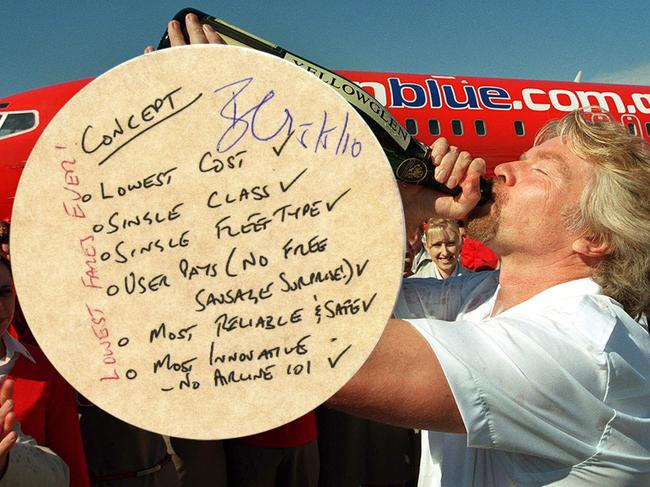 YELLOWGLEN
nblue.com.a
CONCEPT
LOWEST COST ✓
SINGLE CLASS ✓
SINGLE FLEET TYPE ✓
USER PAYS (NO FREE
SAUSAGE SURPRISE!) ✓
MOST RELIABLE & SAFE ✓
MOST INNOVATIVE
– NO AIRLINE 101 ✓
LOWEST FARES EVER!